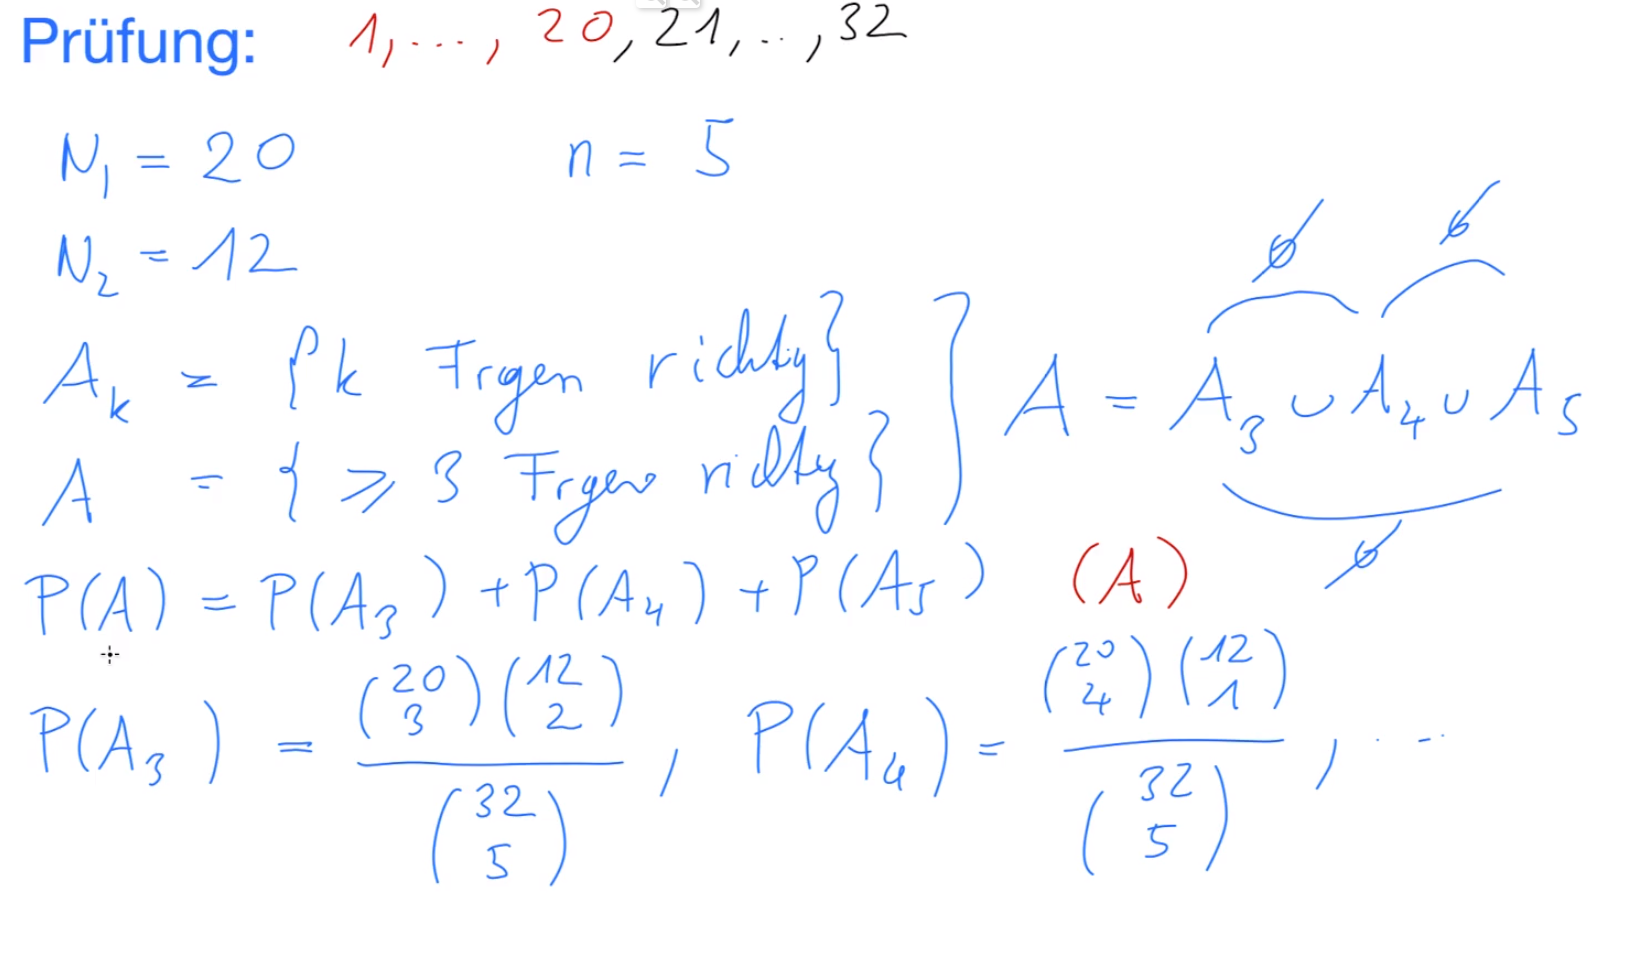 Prüfung: 1, ..., 20, 21, .., 32
N₁ = 20 n = 5
N₂ = 12
Aₖ = {k Frgen richtig}
A = {≥ 3 Frgen richtig}
A = A₃ ∪ A₄ ∪ A₅
∅ ∅
∅
P(A) = P(A₃) + P(A₄) + P(A₅) (A)
P(A₃) = (20 3)(12 2) / (32 5), P(A₄) = (20 4)(12 1) / (32 5), ...